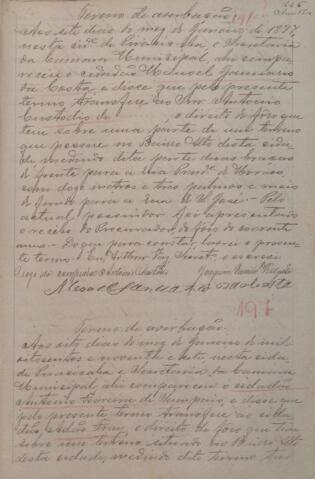 Termo de averbação 191
Aos sete dias do mez de Janeiro de 1897
nesta cid.e de Piracicaba, e Secretaria
da Camara Municipal, ahi compa
receu o cidadão Manoel
da Costa, e disse que pelo presente
termo transfere ao Snr Antonio
Custodio de o direito de fôro que
tem sobre uma parte de um terreno
que possue no Bairro Alto desta cida
de medindo dita parte duas braças
de frente para a rua Prud.e de Moraes,
com doze metros e tres palmos e meio
de fundo para a rua de S. José. Pelo
actual possuidor foi apresentado
o recibo do Procurador do fôro do corrente
anno. Do que para constar lavrei o presen
te termo. Eu, Arthur Vaz, Secret.o o escrevi
Manoel da Costa
197
Termo de averbação.
Aos sete dias do mez de Janeiro de mil
oitocentos e noventa e sete, nesta cida
de Piracicaba e Secretaria da Camara
Municipal ahi compareceu o cidadão
Antonio de Sampaio, e disse que
pelo presente termo transfere ao cida
dão o direito de fôro que tem
sobre um terreno situado no Bairro Alto
desta cidade, medindo dito terreno